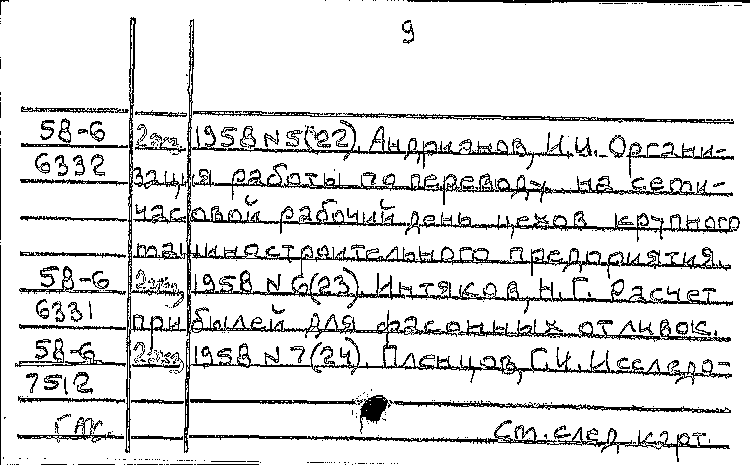 9
58-6 2экз. 1958 N5(22). Андрианов, И.И. Органи-
6332 зация работы по переводу на семи-
часовой рабочий день цехов крупного
машиностроительного предприятия.
58-6 2экз. 1958 N6(23). Интяков, Н.Г. Расчет
6331 прибылей для фасонных отливок.
58-6 2экз. 1958 N7(24). Пленцов, Г.И. Исследо-
7512
См. след. карт.